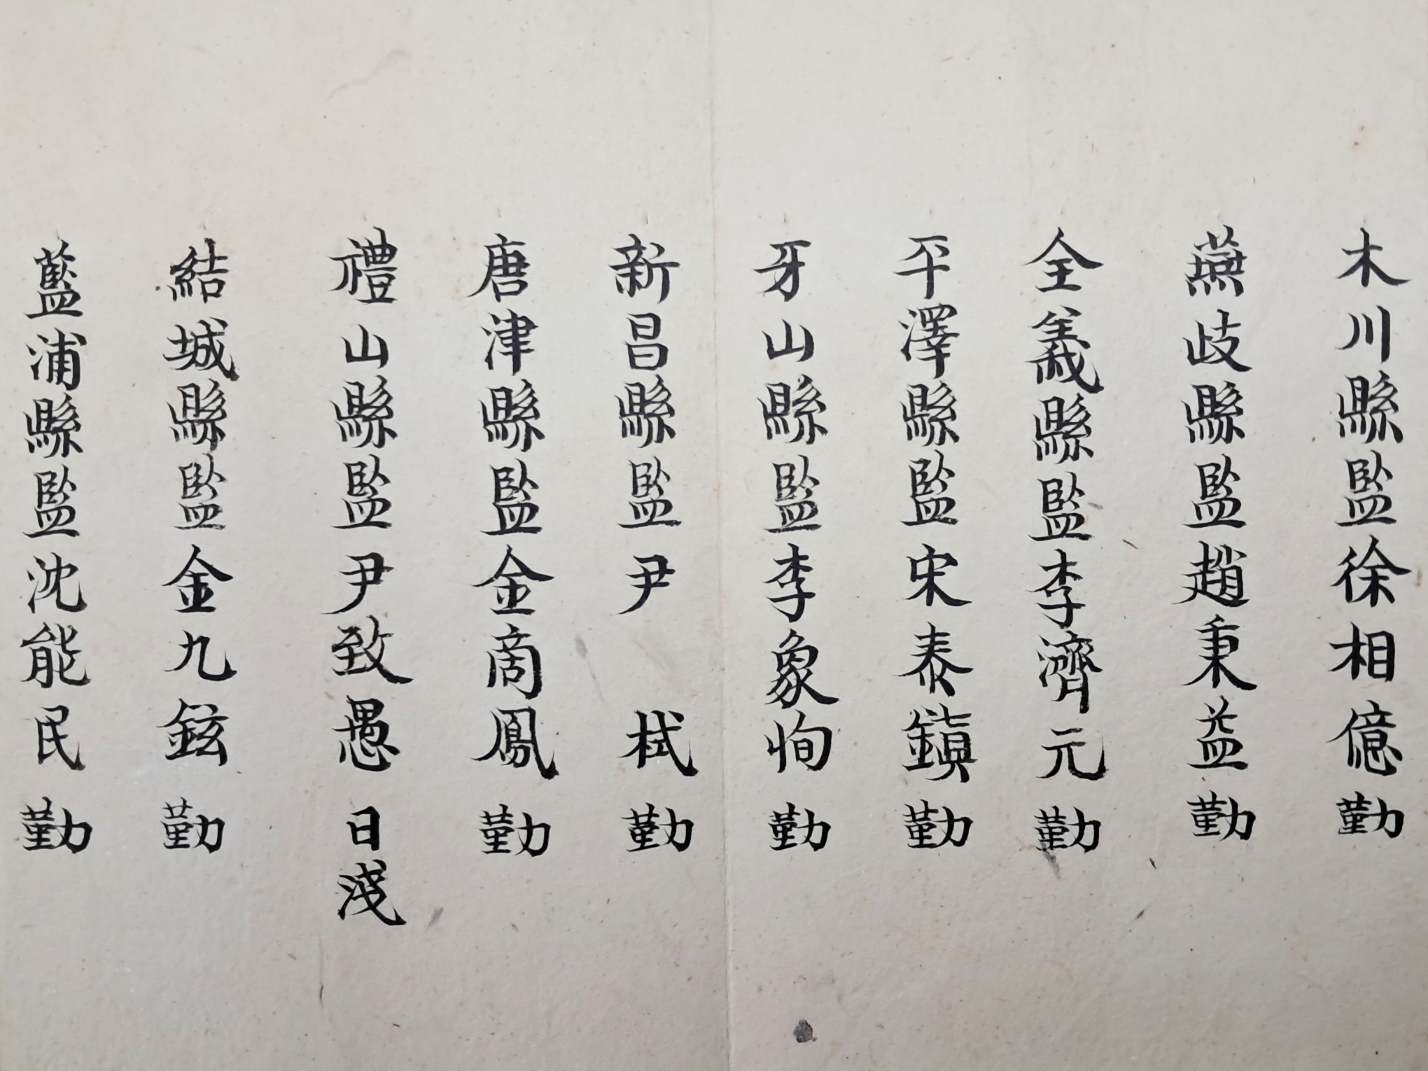 木川縣監徐相億勤
燕岐縣監趙秉益勤
全義縣監李濟元勤
平澤縣監宋泰鎭勤
牙山縣監李象恂勤
新昌縣監尹 栻勤
唐津縣監金商鳳勤
禮山縣監尹致愚日淺
結城縣監金九鉉勤
藍浦縣監沈能民勤